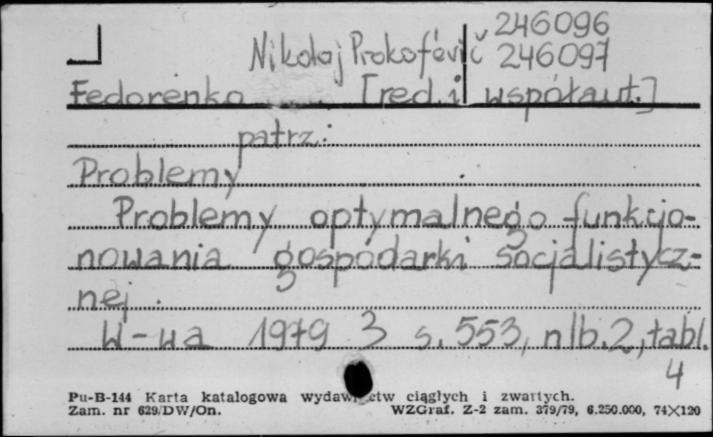 246096
Nikolaj Prokof'evič 246097
Fedorenko [red. i współaut.]
patrz:
Problemy
Problemy optymalnego funkcjo-
nowania gospodarki socjalistycz-
nej.
W-wa 1979 3 s. 553, nlb. 2, tabl.
4
Pu-B-144 Karta katalogowa wydawnictw ciągłych i zwartych.
Zam. nr 629/DW/On. WZGraf. Z-2 zam. 379/79, 6.250.000, 74×120